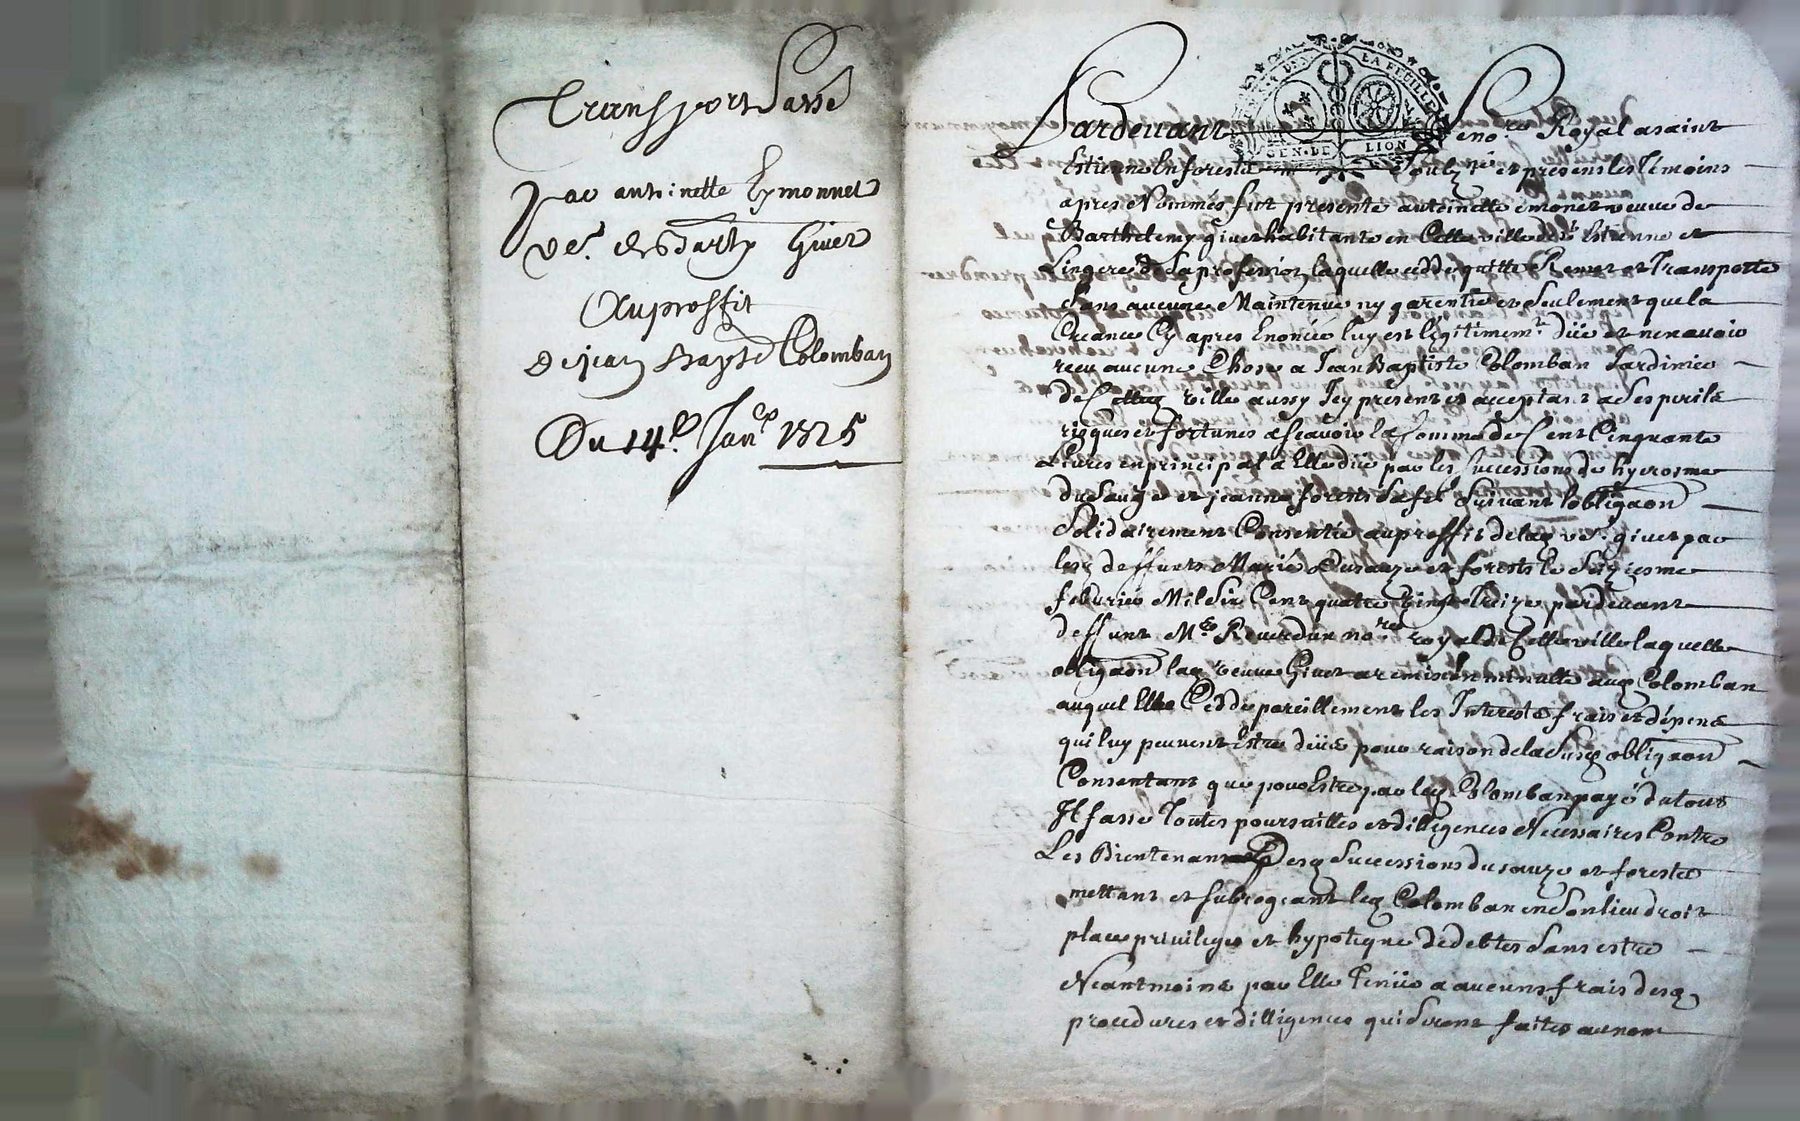 Transport Passé
Par antoinette Eymonnet
ve.e de Barthy Giuet
Auproffit
de jean Baptte Colomban
Du 14.e Janer 1725
GEN. DE LION
Pardeuant Le no.re Royal a saint
Estienne en forests soubz.né et presens les Témoins
apres Nommés fut presente antoinette emonet veuve de
Barthelemy giuet habitante en Cette ville de st Estienne et
Lingere de sa profession, laquelle cedde quitte Remet et Transporte
Sans aucune Maintenue ny garentie et Seulement que la
Creance Cy apres Enoncée luy est legitimemt. düe et nen avoir
receu aucune Chose a Jean Baptiste Colomban Jardinier
de Cette ville aussy Icy present et acceptant a Ses perils
risques et fortunes a scavoir la Somme de Cent Cinquante
Livres en principal a Elle düe par les Successions de hyerosme
du Sauze et jeanne forests Sa fe. Suivant lobligaon
Solidairement Consentie au proffit de lad ve. giuet par
lesd deffunts Mariés Dusauze et forests le Seiziesme
feburier Mil Six Cent quatre Vingt Treize pardevant
deffunt Me Reverdun no.re royal de Cette ville laquelle
obligaon lad veuve Giuet a remise en minutte aud Colomban
auquel Elle Cedde pareillement les Interests frais et dépens
qui luy peuvent Estre düs pour raison de la Susd obligaon
Consentant que pour Estre par led Colomban payé du tout
Il fasse Toutes poursuittes et dilligences Necessaires Contre
Les Bientenants Desd Successions du sauze et forests
mettant et subrogeant led Colomban en Son lieu droit
place privileges et hypoteque de debtes Sans estre
Neantmoins par Elle Tenüe a aucuns frais desd
procedures et dilligences qui Seront faites au nom